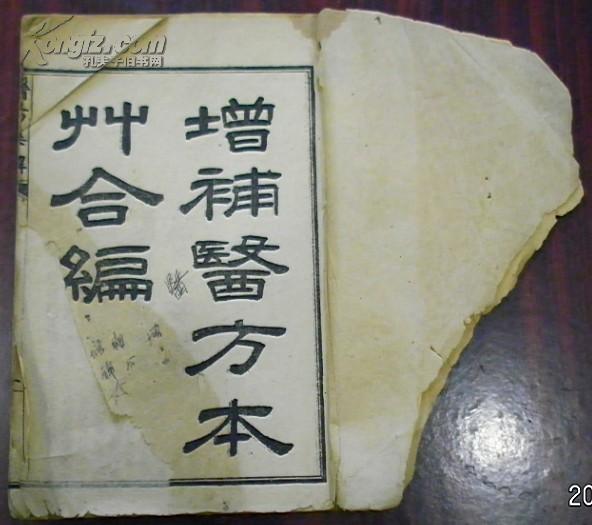 增補醫方本
艸合編
Kongfz.com
孔夫子旧书网
20